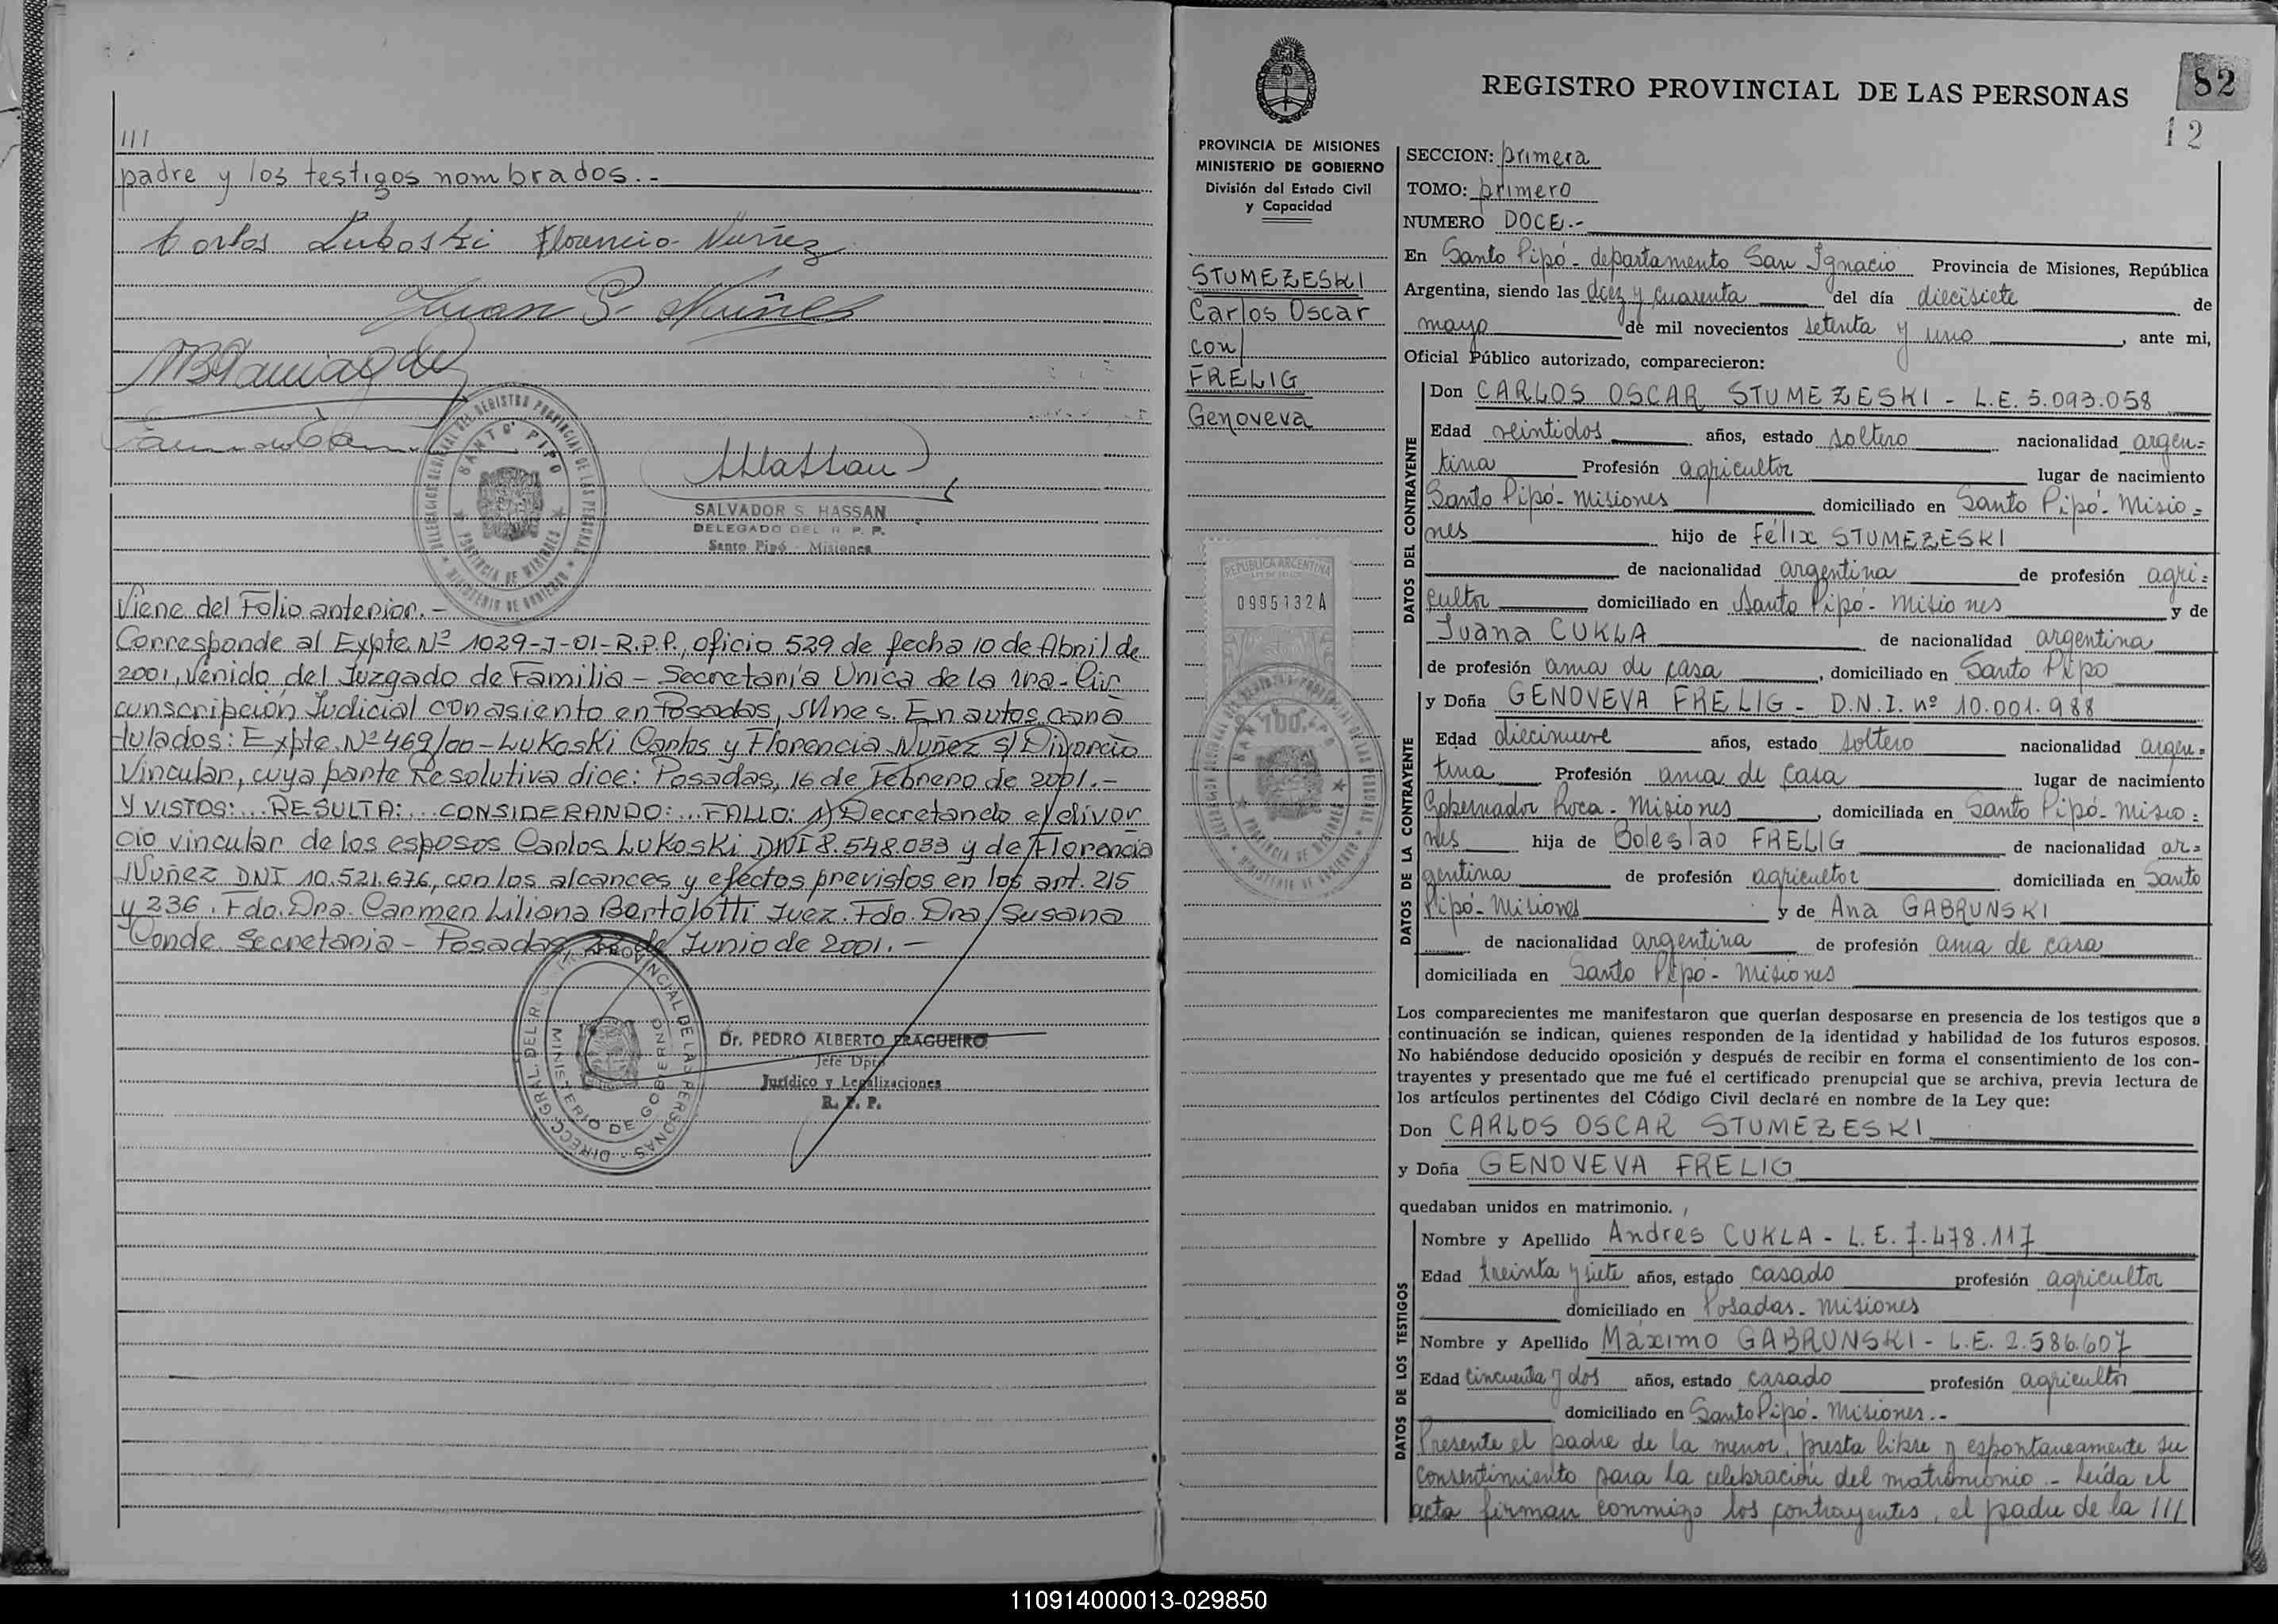 ///
padre y los testigos nombrados.-
Carlos Lukoski Florencia Nuñez
Juan P. Nuñes
DELEGACION REGIONAL DEL REGISTRO PROVINCIAL DE LAS PERSONAS
SANTO PIPO
PROVINCIA DE MISIONES
MINISTERIO DE GOBIERNO
SALVADOR S. HASSAN
DELEGADO DEL R. P. P.
Santo Pipó - Misiones
Viene del Folio anterior.-
Corresponde al Expte. Nº 1029-J-01-R.P.P., oficio 529 de fecha 10 de Abril de
2001, Venido del Juzgado de Familia - Secretaría Unica de la 1ra. Cir
cunscripción Judicial con asiento en Posadas, Mnes. En autos cara
tulados: Expte. Nº 469/00 - Lukoski Carlos y Florencia Nuñez s/ Divorcio
Vincular, cuya parte Resolutiva dice: Posadas, 16 de Febrero de 2001.-
Y VISTOS:... RESULTA:... CONSIDERANDO:... FALLO: 1) Decretando el divor
cio vincular de los esposos Carlos Lukoski DNI 8.548.033 y de Florencia
Nuñez DNI 10.521.676, con los alcances y efectos previstos en los art. 215
y 236. Fdo. Dra. Carmen Liliana Bertolotti Juez. Fdo. Dra Susana
Conde Secretaria - Posadas, de Junio de 2001.-
DIRECC. GRAL. DEL REG. PROVINCIAL DE LAS PERSONAS
MINISTERIO DE GOBIERNO
Dr. PEDRO ALBERTO FRAGUEIRO
Jefe Dpto
Jurídico y Legalizaciones
R. P. P.
82
12
REGISTRO PROVINCIAL DE LAS PERSONAS
PROVINCIA DE MISIONES
MINISTERIO DE GOBIERNO
División del Estado Civil
y Capacidad
STUMEZESKI
Carlos Oscar
con
FRELIG
Genoveva
REPUBLICA ARGENTINA
0995132A
100
SECCION: primera
TOMO: primero
NUMERO DOCE.-
En Santo Pipó - departamento San Ignacio Provincia de Misiones, República
Argentina, siendo las diez y cuarenta del día diecisiete de
mayo de mil novecientos setenta y uno, ante mi,
Oficial Público autorizado, comparecieron:
DATOS DEL CONTRAYENTE
Don CARLOS OSCAR STUMEZESKI - L.E. 5.093.058
Edad veintidos años, estado soltero nacionalidad argen=
tina Profesión agricultor lugar de nacimiento
Santo Pipó - Misiones domiciliado en Santo Pipó - Misio=
nes hijo de Félix STUMEZESKI
de nacionalidad argentina de profesión agri=
cultor domiciliado en Santo Pipó - Misiones y de
Juana CUKLA de nacionalidad argentina
de profesión ama de casa, domiciliado en Santo Pipo
DATOS DE LA CONTRAYENTE
y Doña GENOVEVA FRELIG - D.N.I. nº 10.001.988
Edad diecinueve años, estado soltero nacionalidad argen=
tina Profesión ama de casa lugar de nacimiento
Gobernador Roca - Misiones, domiciliada en Santo Pipó - Misio=
nes hija de Boleslao FRELIG de nacionalidad ar=
gentina de profesión agricultor domiciliada en Santo
Pipó - Misiones y de Ana GABRUNSKI
de nacionalidad argentina de profesión ama de casa
domiciliada en Santo Pipó - Misiones
Los comparecientes me manifestaron que querían desposarse en presencia de los testigos que a
continuación se indican, quienes responden de la identidad y habilidad de los futuros esposos.
No habiéndose deducido oposición y después de recibir en forma el consentimiento de los con-
trayentes y presentado que me fué el certificado prenupcial que se archiva, previa lectura de
los artículos pertinentes del Código Civil declaré en nombre de la Ley que:
Don CARLOS OSCAR STUMEZESKI
y Doña GENOVEVA FRELIG
quedaban unidos en matrimonio.
DATOS DE LOS TESTIGOS
Nombre y Apellido Andrés CUKLA - L.E. 7.478.117
Edad treinta y siete años, estado casado profesión agricultor
domiciliado en Posadas - Misiones
Nombre y Apellido Máximo GABRUNSKI - L.E. 2.586.607
Edad cincuenta y dos años, estado casado profesión agricultor
domiciliado en Santo Pipó - Misiones.-
Presente el padre de la menor, presta libre y espontaneamente su
consentimiento para la celebración del matrimonio.- Leída el
acta firman conmigo los contrayentes, el padre de la ///
110914000013-029850